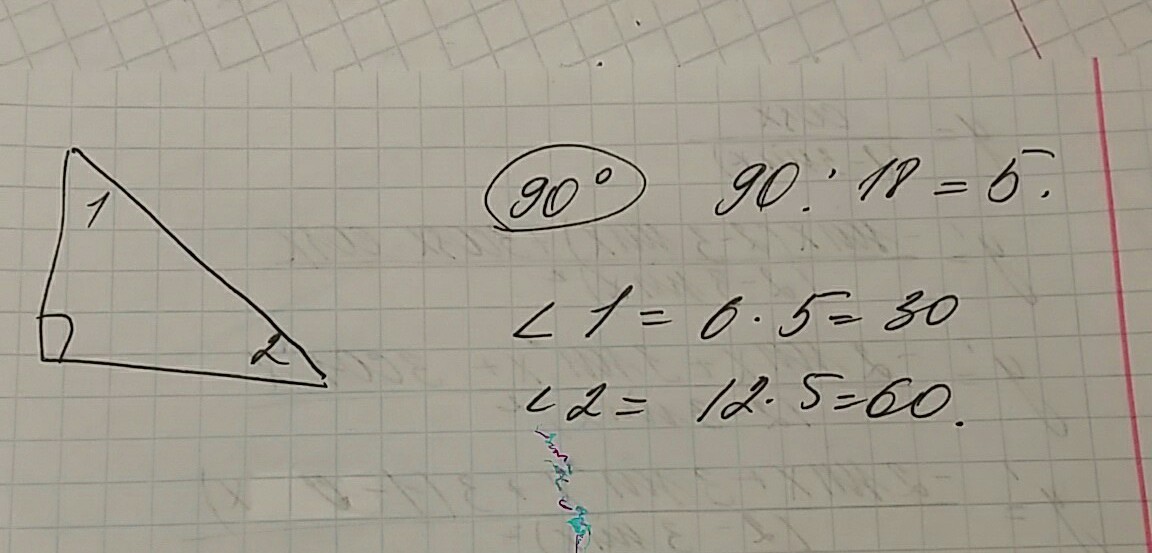 1
2
90° 90 : 18 = 5.
∠ 1 = 6 · 5 = 30
∠ 2 = 12 · 5 = 60.